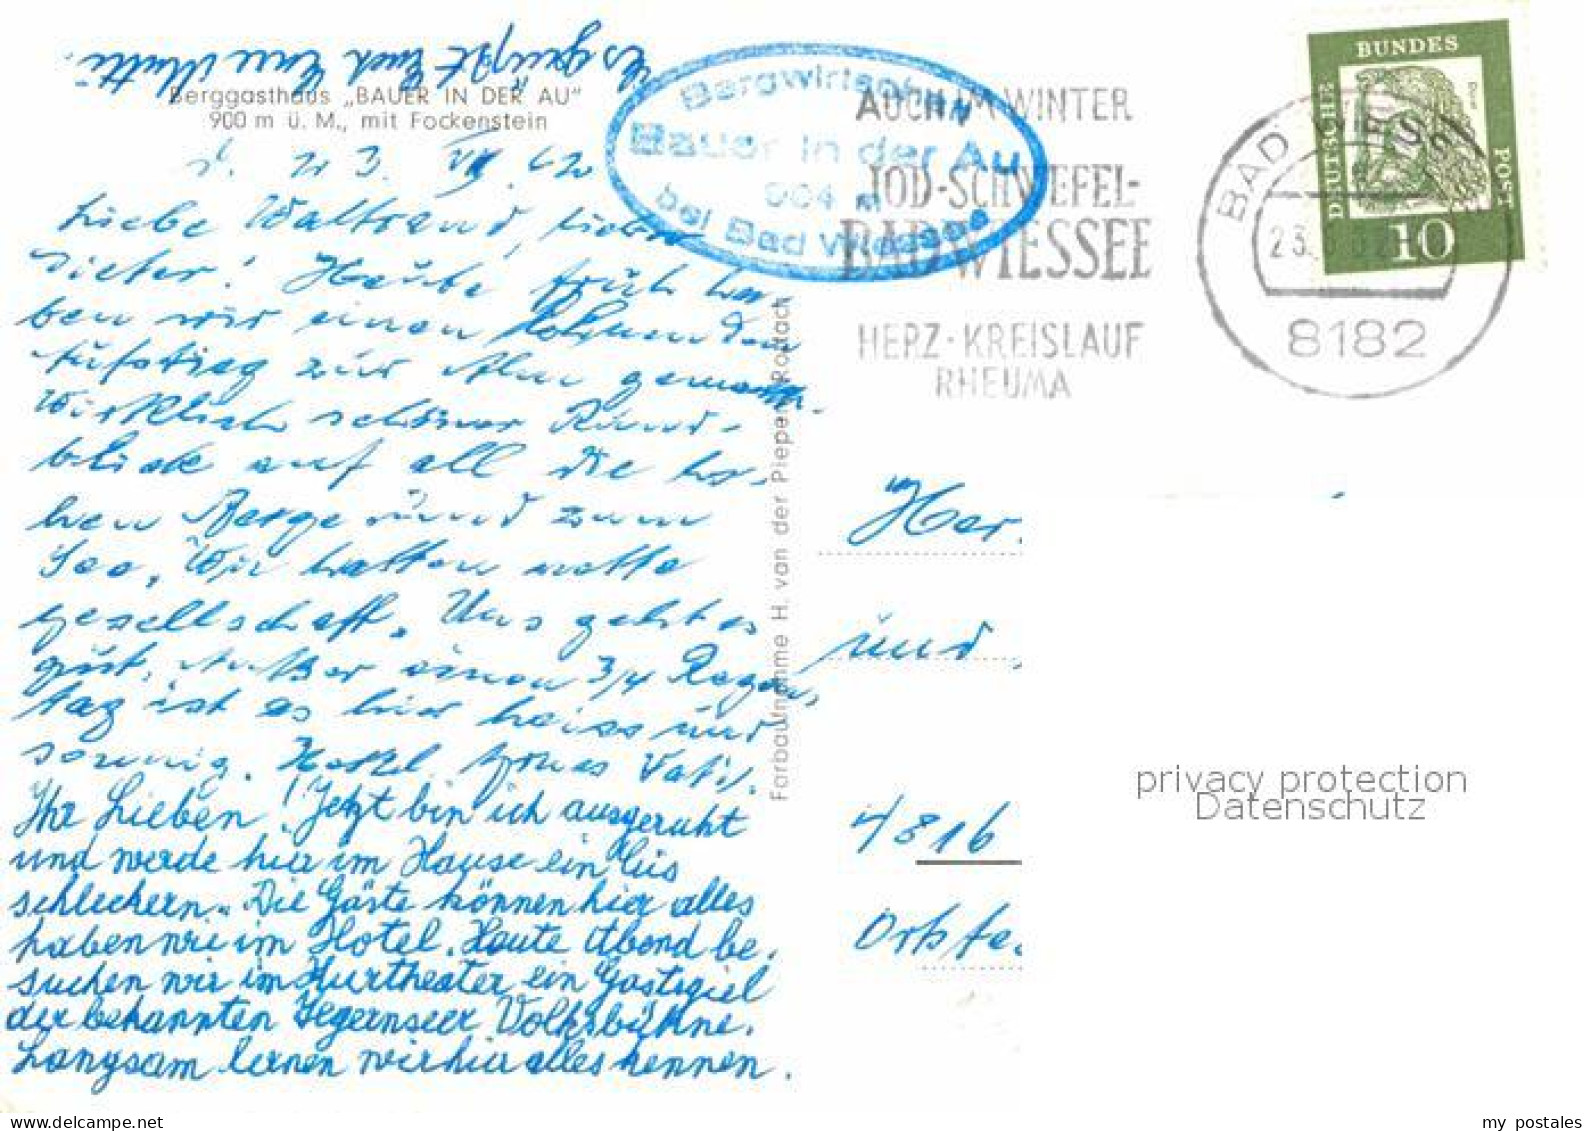 Es grüßt Euch Eure Mutti.
Berggasthaus „BAUER IN DER AU"
900 m ü. M., mit Fockenstein
d. 23. VII. 62
Liebe Waltraud, lieber
Dieter! Heute früh ha-
ben wir einen lohnenden
Aufstieg zur Alm gemacht.
Wirklich schöner Rund-
blick auf all die ho-
hen Berge rund zum
See, Wir hatten nette
gesellschaft. Uns geht es
gut. Außer einen 3/4 Regen-
tag ist es hier heiss und
sonnig. Herzl. Vati.
Ihr Lieben! Jetzt bin ich ausgeruht
und werde hier im Hause ein Eis
schleckern. Die Gäste können hier alles
haben wie im Hotel. Heute Abend be-
suchen wir im Kurtheater ein Gastspiel
der bekannten Tegernseer Volksbühne.
Langsam lernen wir hier alles kennen.
Farbaufnahme H. van der Piepen, Rottach
Bergwirtschaft
Bauer in der Au
904 m
bei Bad Wiessee
AUCH IM WINTER
JOD-SCHWEFEL-
BAD WIESSEE
HERZ-KREISLAUF
RHEUMA
BAD WIESSEE
8182
DEUTSCHE
BUNDES
POST
Dürer
10
Her.
und
4816
privacy protection
Datenschutz
my postales